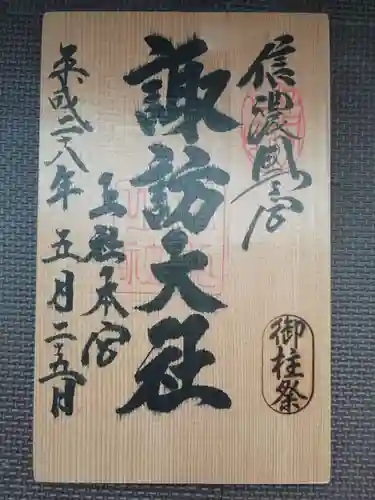 信濃國一之宮
御柱祭
諏訪大社
上社本宮
平成二十八年五月二十五日